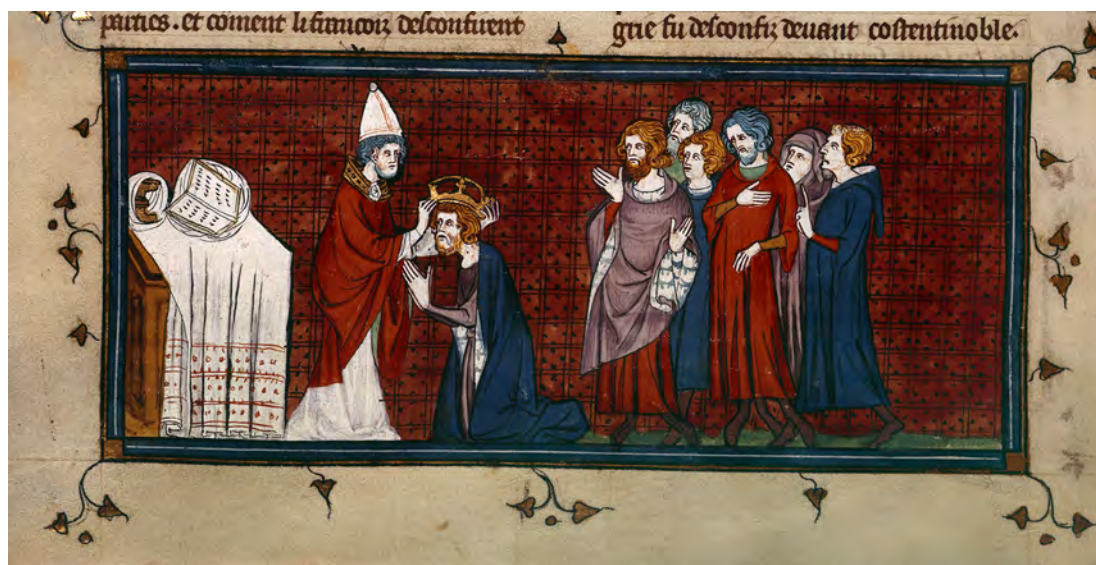 parties. et coment li francois desconfirent
grie fu desconfiz deuant costentinoble.